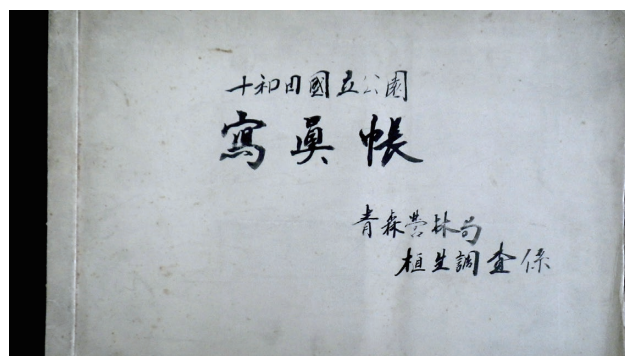 十和田國立公園
寫眞帳
青森営林局
植生調査係